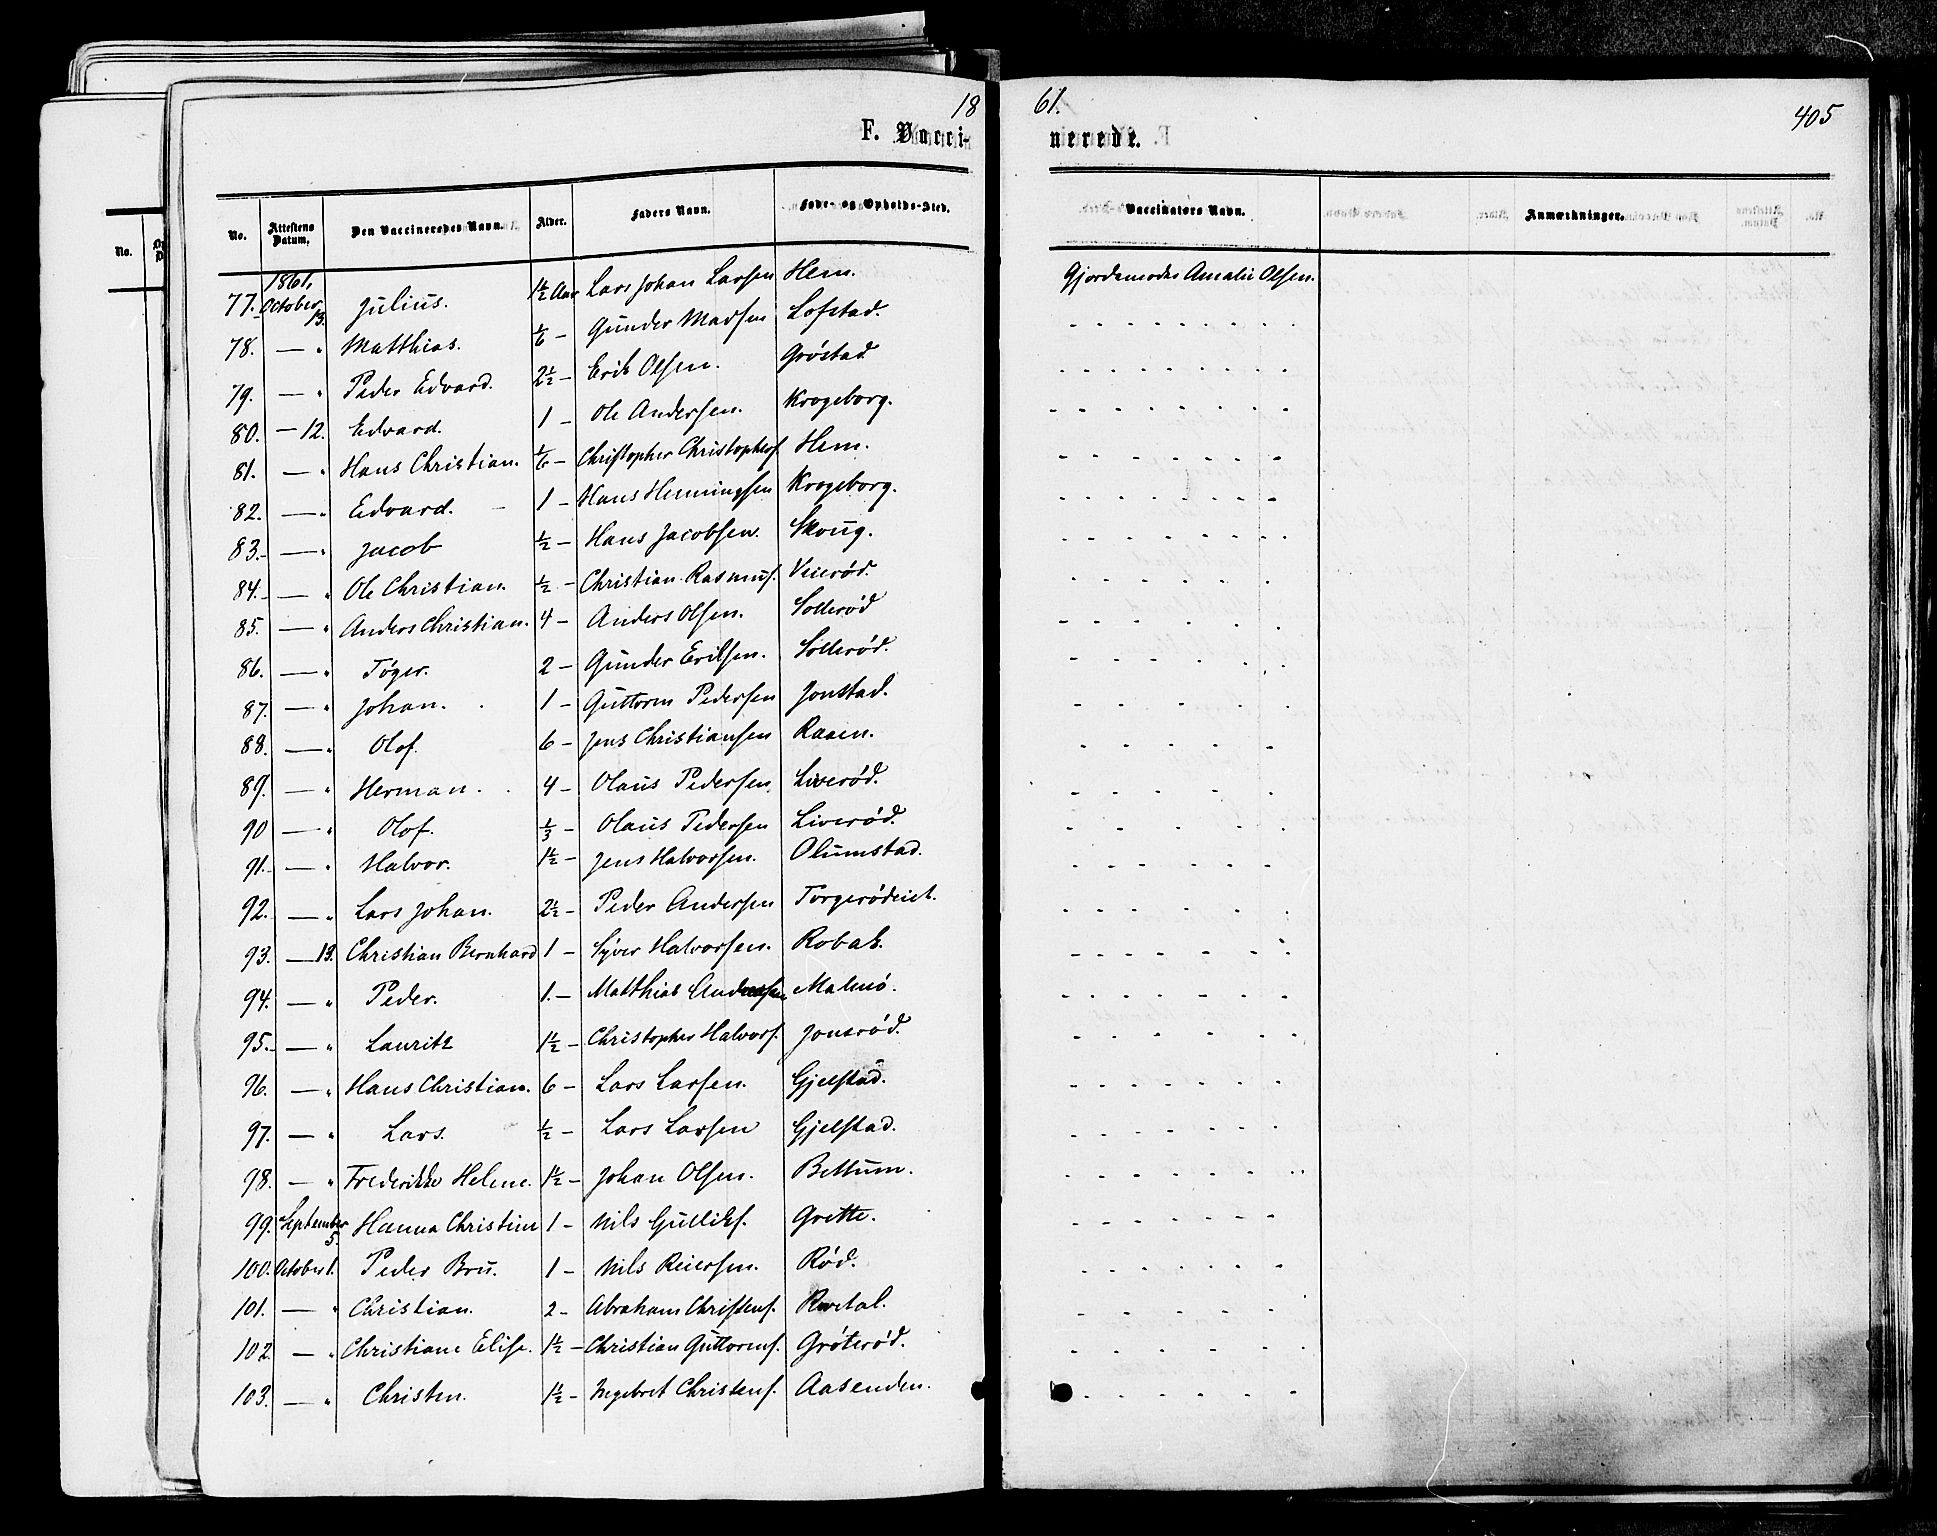 1861.
405
F. Vaccinerede.
No. Attestens Datum. Den Vaccineredes Navn. Alder. Faders Navn. Føde- og Opholds-Sted. Vaccinators Navn. Anmærkninger.
1861,
77. October 13. Julius. 1½ Aar Lars Johan Larsen Hem. Gjordemoder Amalie Olsen.
78. — " Matthias. 1/6 – Gunder Madsen Lofstad.
79. — " Peder Edvard. 2½ – Erik Olsen. Grøstad
80. — 12. Edvard. 1 – Ole Andersen. Krogeborg.
81. — " Hans Christian. 1/6 – Christopher Christophers. Hem.
82. — " Edvard. 1 – Hans Henningsen Krogeborg.
83. — " Jacob ½ – Hans Jacobsen. Skoug.
84. — " Ole Christian. ½ – Christian Rasmus. Veierød.
85. — " Anders Christian. 4 – Anders Olsen. Sollerød
86. — " Tøger. 2 – Gunder Eriksen. Sollerød.
87. — " Johan. 1 – Guttorm Pedersen Jonstad.
88. — " Olof. 6 – Jens Christiansen Raaen.
89. — " Herman. 4 – Olaus Pedersen. Liverød.
90 — " Olof. 1/3 – Olaus Pedersen Liverød.
91. — " Halvor. 1½ – Jens Halvorsen. Olumstad.
92. — " Lars Johan. 2½ – Peder Andersen Torgerødeiet.
93. — 13. Christian Bernhard 1 – Syver Halvorsen. Robak.
94. — " Peder. 1. – Matthias Andersen Malmø.
95. — " Lauritz 1½ – Christopher Halvors. Jonsrød.
96. — " Hans Christian. 6 – Lars Larsen. Gjelstad.
97. — " Lars. ½ – Lars Larsen Gjelstad.
98. — " Frederikke Helene. 1½ – Johan Olsen. Bettum.
99. September 5. Hanna Christine 1 – Nils Gulliks. Grette.
100. October 1. Peder Bru. 1 – Nils Reiersen. Rød.
101. — " Christian. 2 – Abraham Christens. Revetal.
102. — " Christiane Elise. 1½ – Christian Guttorms. Grøterød.
103. — " Christen. 1½ – Ingebret Christens. Aasenden.